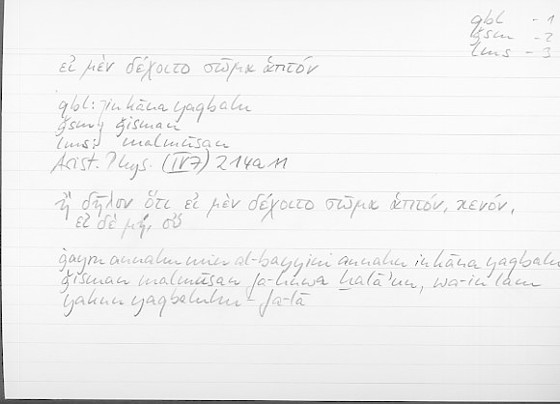 qbl - 1
ǧsm - 2
lms - 3
εἰ μὲν δέχοιτο σῶμα ἁπτόν
qbl: in kāna yaqbalu
ǧsm: ǧisman
lms: malmūsan
Arist. Phys. (IV7) 214a11
ἢ δῆλον ὅτι εἰ μὲν δέχοιτο σῶμα ἁπτόν, κενόν,
εἰ δὲ μή, οὔ
ġayra annahu min al-bayyini annahu in kāna yaqbalu
ǧisman malmūsan fa-huwa ḫalāʾun, wa-in lam
yakun yaqbaluhu fa-lā